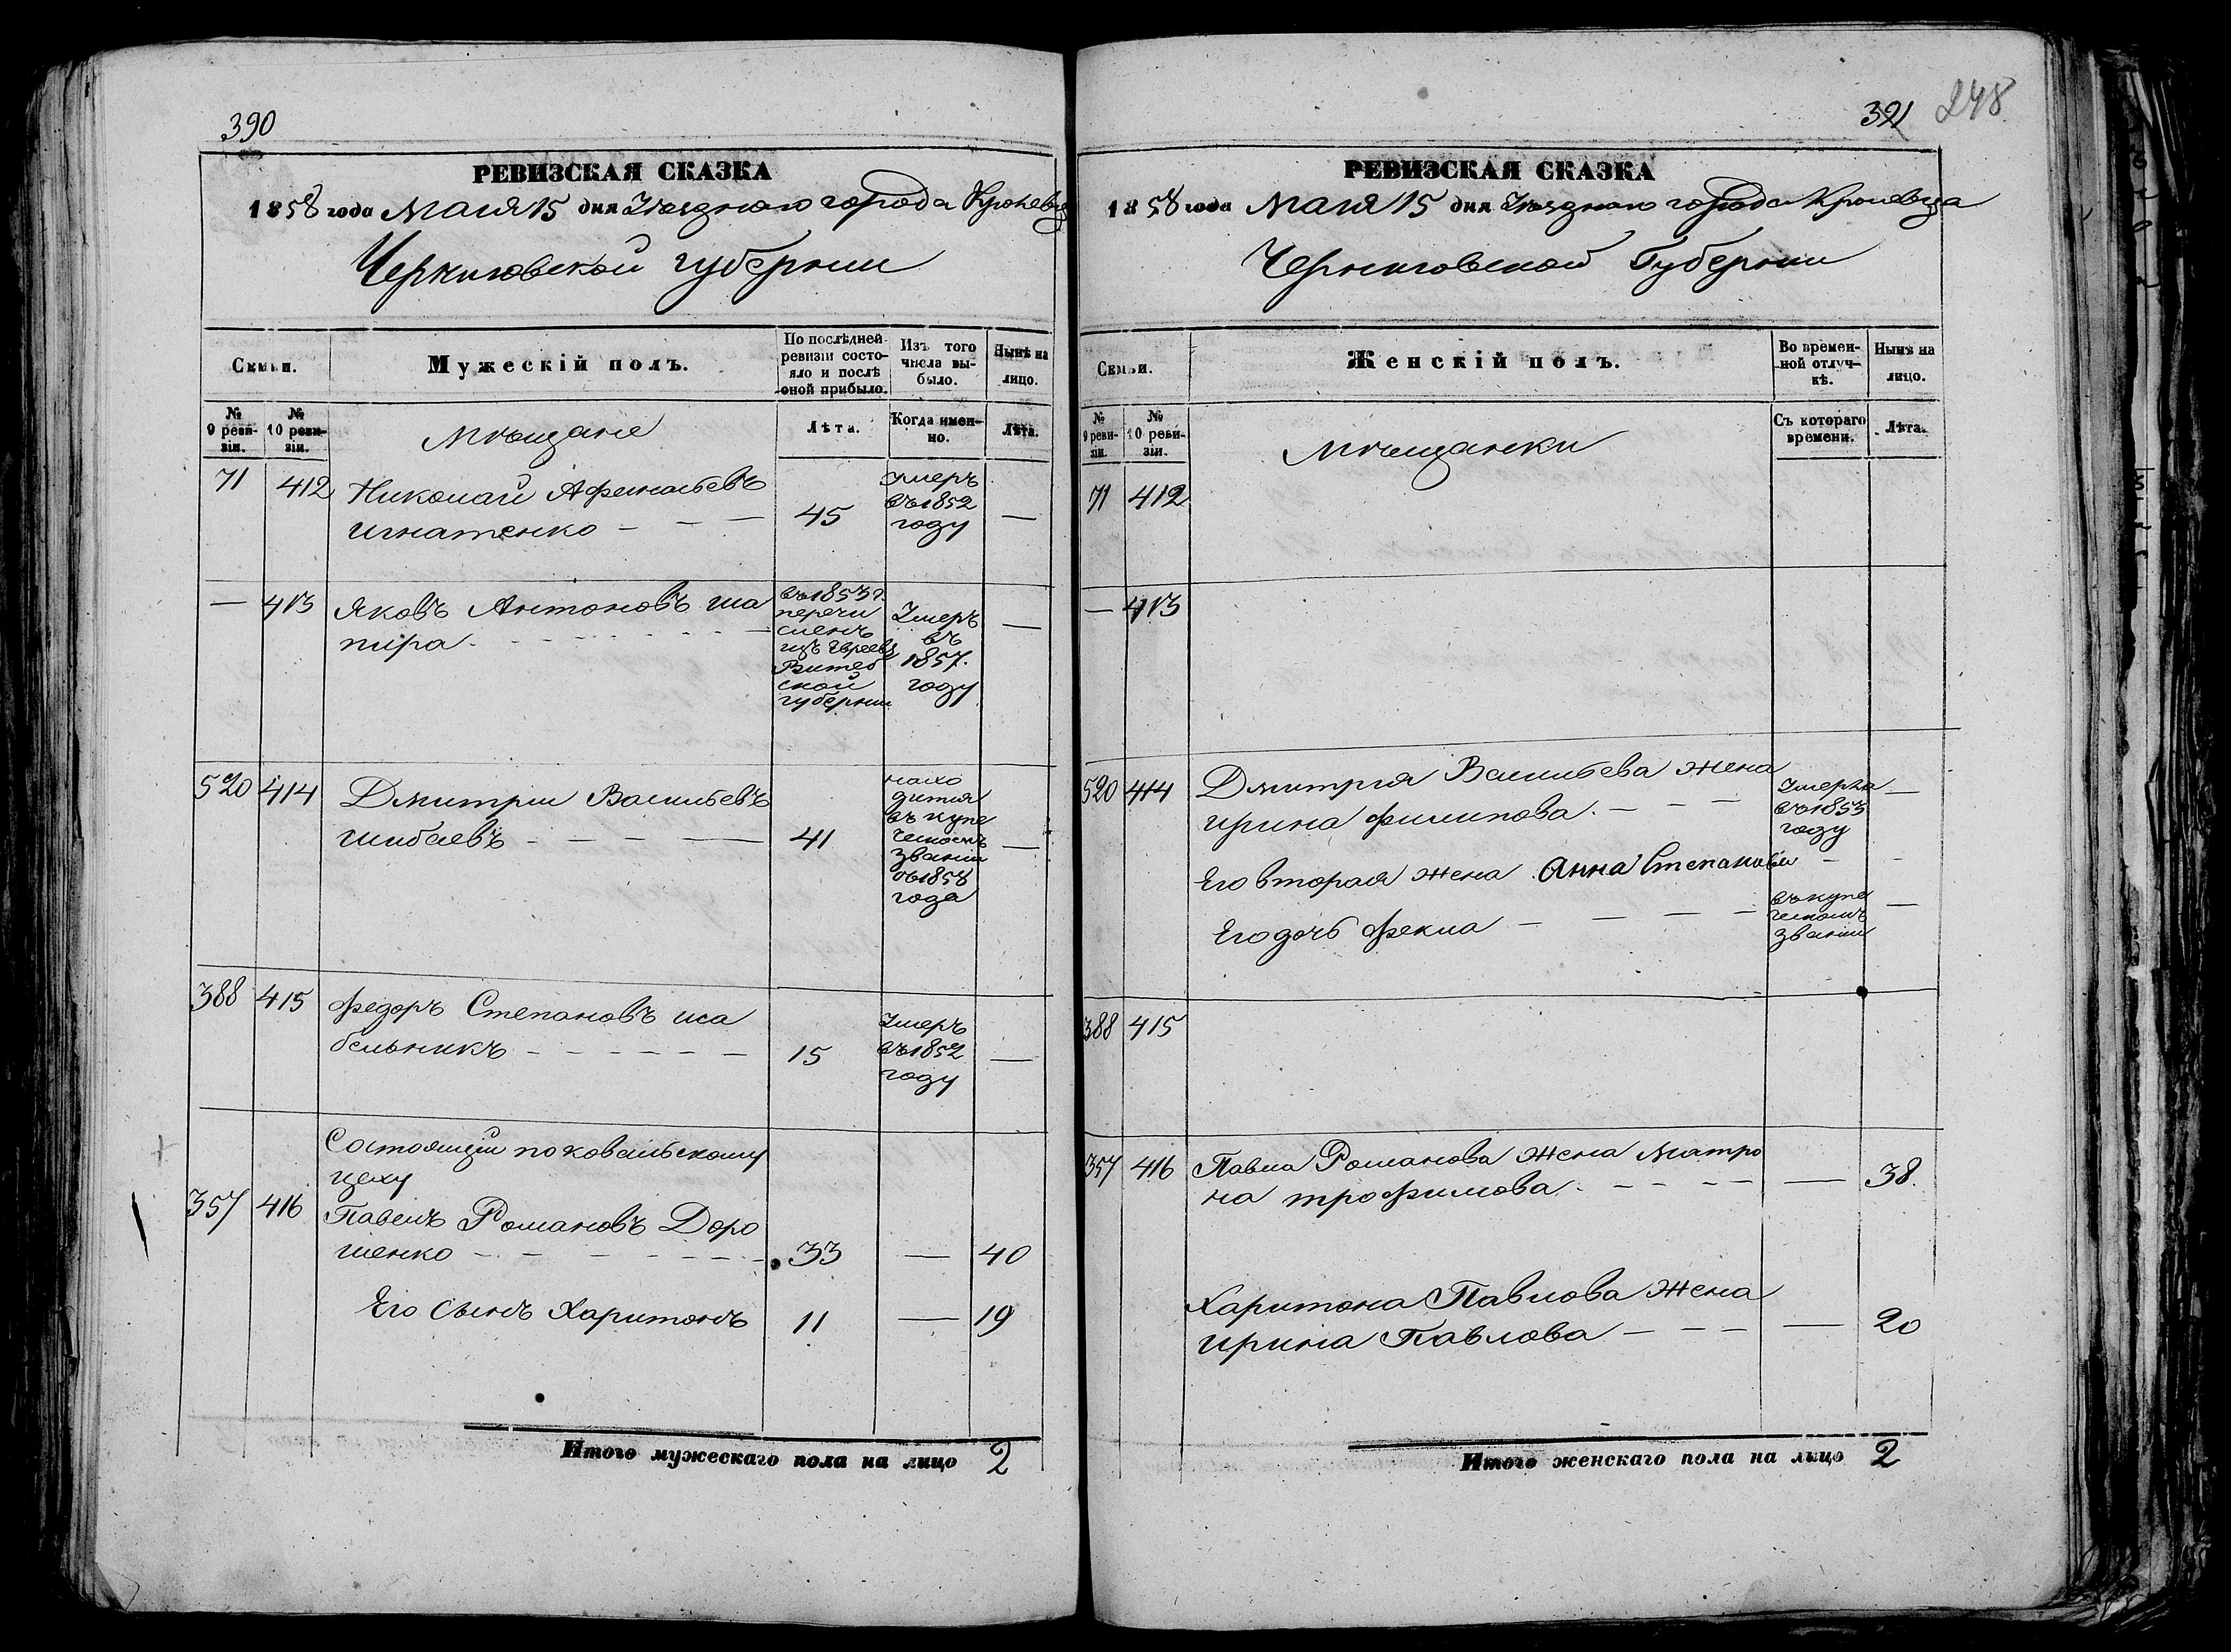 390
РЕВИЗСКАЯ СКАЗКА
1858 года Маія 15 дня Уезднаго города Кролевца
Черниговской губернии
Семьи.
Мужескій полъ.
По послѣдней ревизіи состояло и послѣ оной прибыло.
Изъ того числа выбыло.
Нынѣ на лицо.
№ 9 ревизіи.
№ 10 ревизіи.
Мѣщане
Лѣта.
Когда именно.
Лѣта.
71 412 Николай Афанасьевъ
Игнатенко - - - 45 Умеръ въ 1852 году —
— 413 Яковъ Антоновъ Ша
пира - - - въ 1853 г. перечи сленъ изъ Евреевъ Витеб ской губернии Умеръ въ 1857. году —
520 414 Дмитрии Васильевъ
Шибаевъ - - - 41 нахо дится въ купе ческомъ звании съ 1858 года —
388 415 Федоръ Степановъ Иса
бельникъ - - - 15 Умеръ въ 1852 году —
Состоящии по ковальскому
цеху
357 416 Павелъ Романовъ Доро
шенко - - - 33 — 40
Его сынъ Харитонъ 11 — 19
Итого мужескаго пола на лицо 2
391 248
РЕВИЗСКАЯ СКАЗКА
1858 года Маія 15 дня Уезднаго города Кролевца
Черниговской Губернии
Семьи.
Женскій полъ.
Во временной отлучкѣ.
Нынѣ на лицо.
№ 9 ревизіи.
№ 10 ревизіи.
Мѣщанки
Съ котораго времени.
Лѣта.
71 412
— 413
520 414 Дмитрия Васильева жена
Ирина Филипова. - - - Умерла въ 1853 году —
Его вторая жена Анна Степанова - -
Его дочь Фекла - - - въ купе ческомъ звании —
388 415
357 416 Павла Романова жена Матро
на Трофимова. - - - — 38.
Харитона Павлова жена
Ирина Павлова - - - — 20
Итого женскаго пола на лицо 2